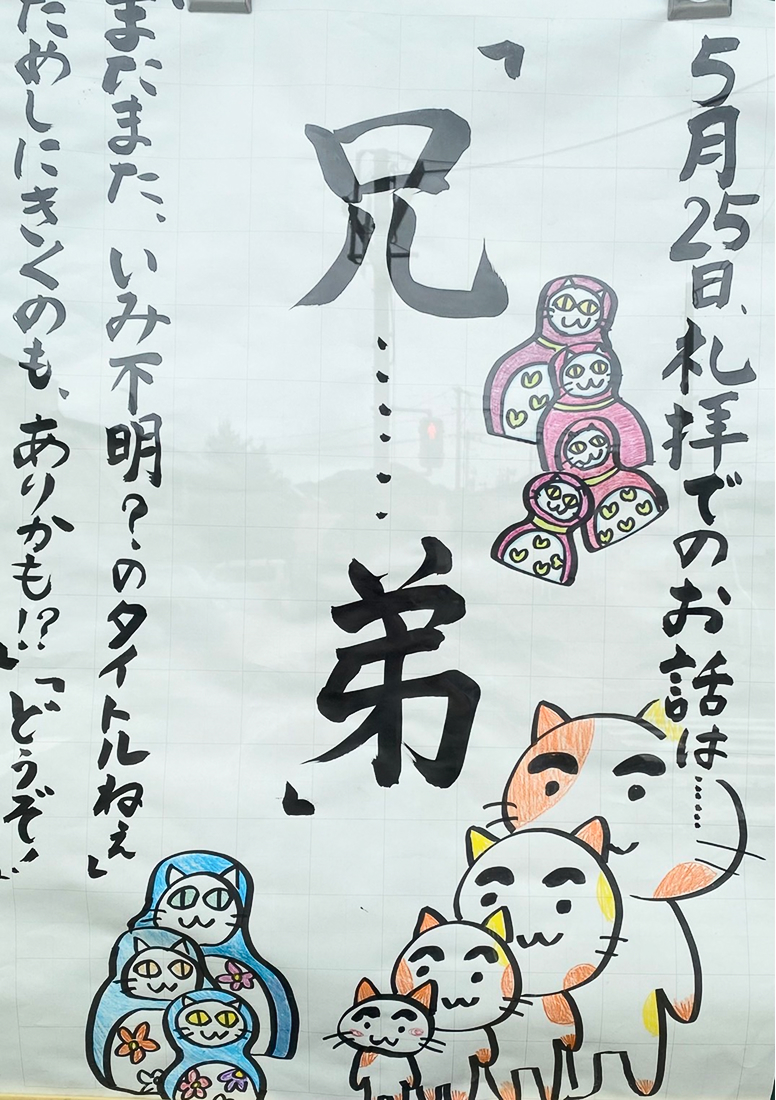 5月25日、札拝でのお話は……
「兄……弟」
「またまた、いみ不明?のタイトルねぇ」
ためしにきくのも、ありかも!?」「どうぞ!」